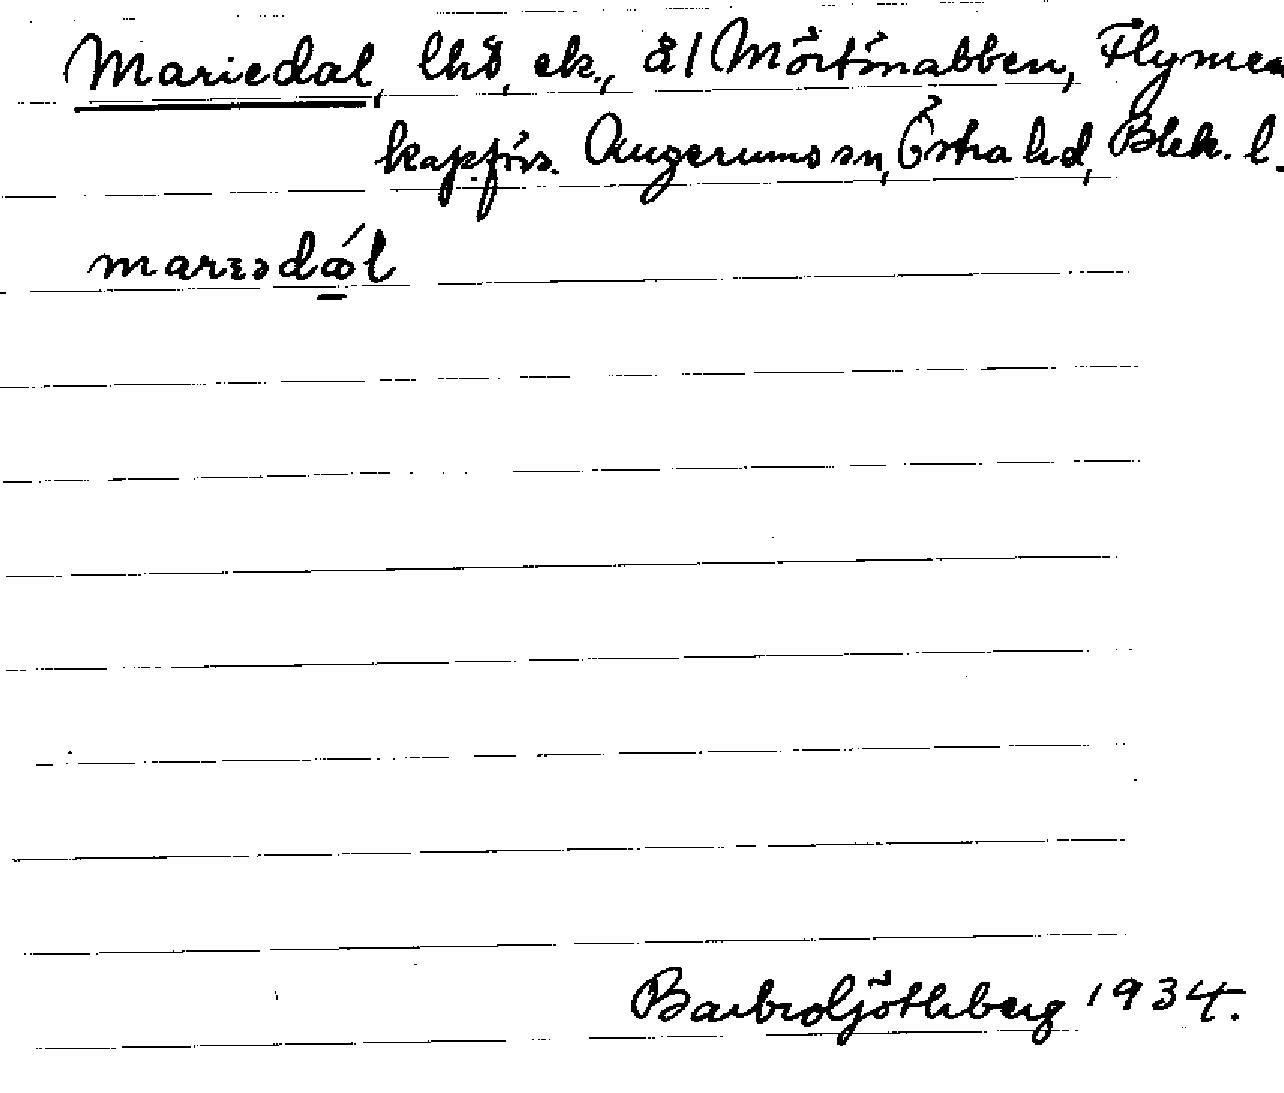 Mariedal, lhd, ek., å 1 Mörtönabben, Flymen
kapförs. Augerums sn, Östra hd, Blek. l.
mariədál
Barbro Ljöthberg 1934.